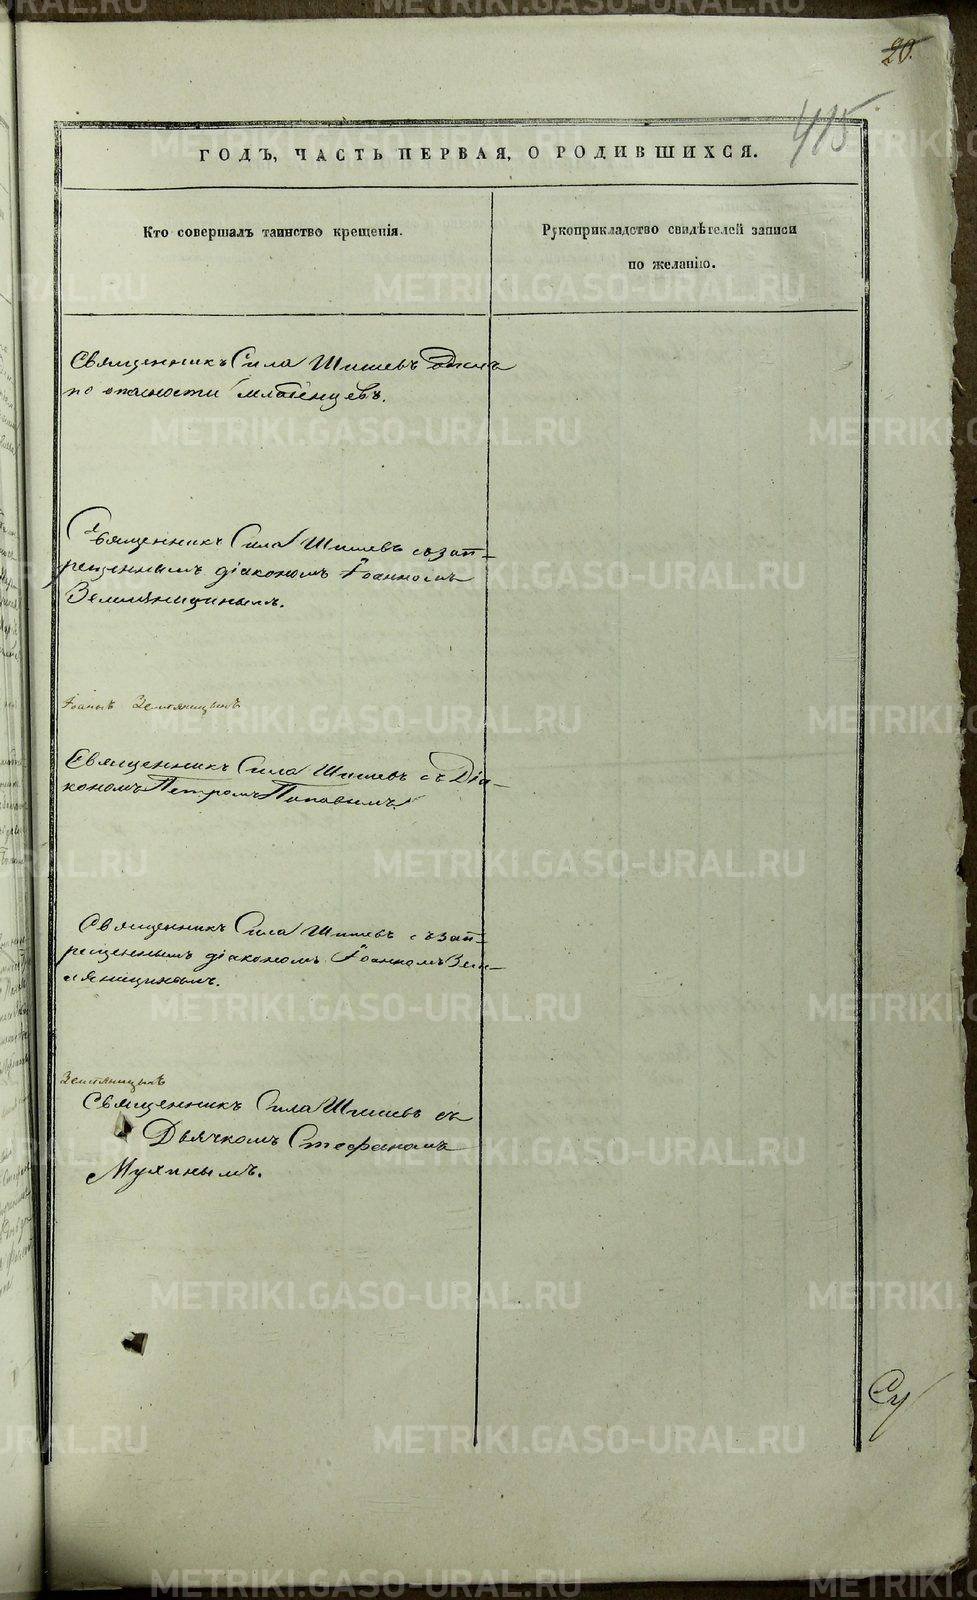 20.
415
ГОДЪ, ЧАСТЬ ПЕРВАЯ, О РОДИВШИХСЯ.
Кто совершалъ таинство крещенія.
Рукоприкладство свидѣтелей записи
по желанію.
Священникъ Сила Шишевъ одинъ
по опасности младенцевъ.
Священникъ Сила Шишевъ съ зап-
рещеннымъ діакономъ Іоанномъ
Земляницинымъ.
Іоаннъ Земляницынъ
Священникъ Сила Шишевъ съ Діа-
кономъ Петромъ Поповымъ
Священникъ Сила Шишевъ съ зап-
рещеннымъ діакономъ Іоанномъ Зем-
ляницинымъ.
Земляницынъ
Священникъ Сила Шишевъ съ
Дьячкомъ Стефаномъ
METRIKI.GASO-URAL.RU